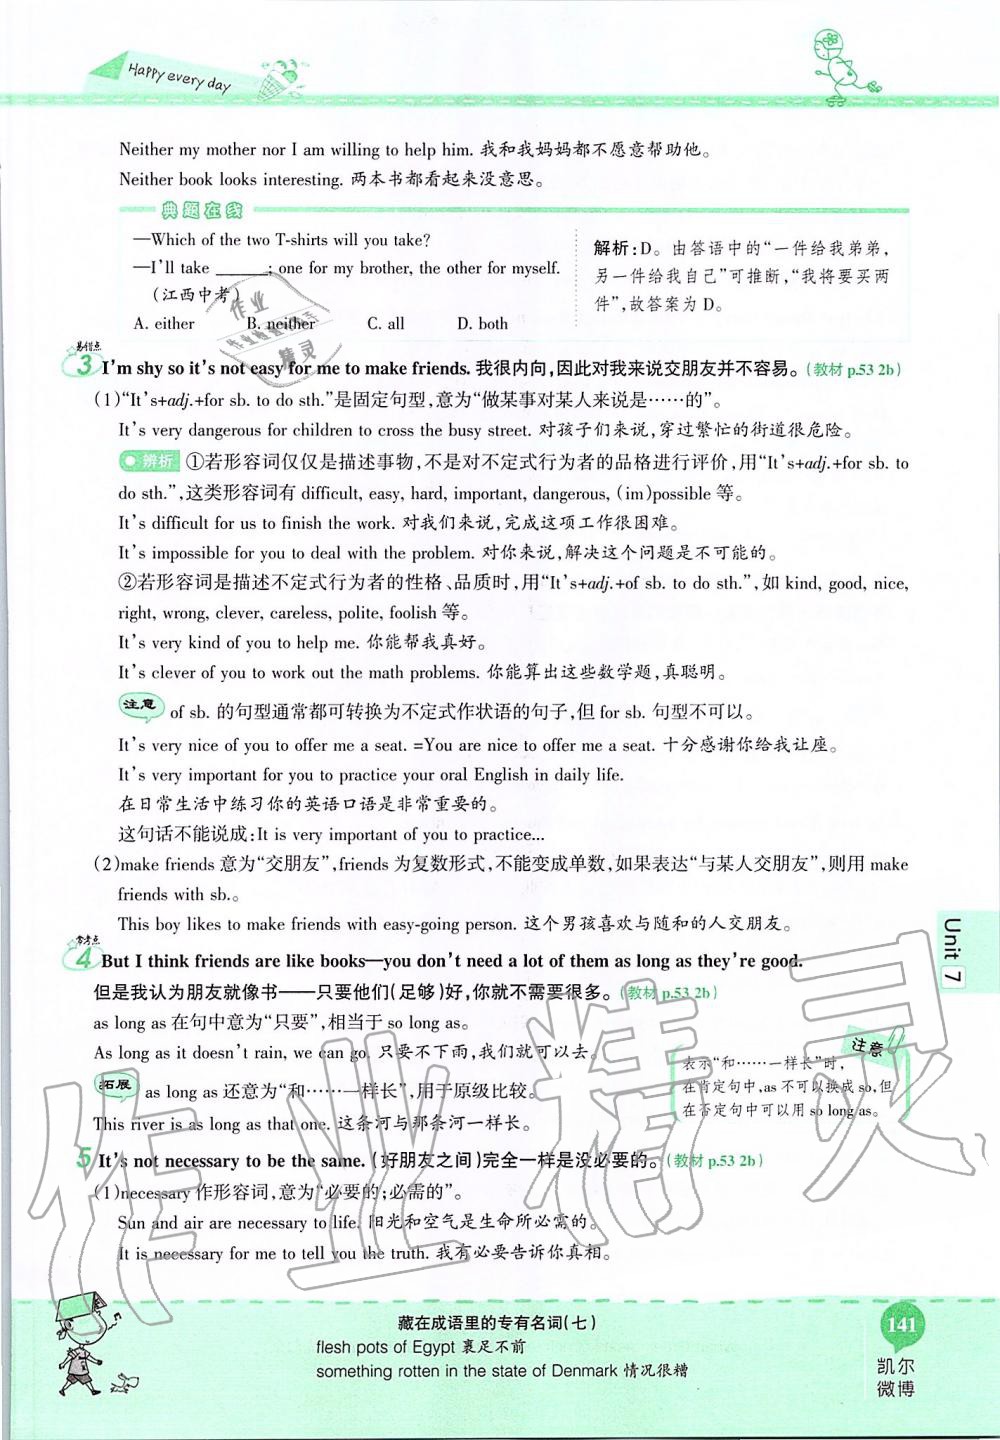 Happy every day
Neither my mother nor I am willing to help him. 我和我妈妈都不愿意帮助他。
Neither book looks interesting. 两本书都看起来没意思。
典题在线
—Which of the two T-shirts will you take?
—I'll take ______; one for my brother, the other for myself.
(江西中考)
A. either B. neither C. all D. both
解析:D。由答语中的“一件给我弟弟,
另一件给我自己”可推断,“我将要买两
件”,故答案为 D。
易错点
3 I'm shy so it's not easy for me to make friends. 我很内向,因此对我来说交朋友并不容易。(教材 p.53 2b)
(1)“It's+adj.+for sb. to do sth.”是固定句型,意为“做某事对某人来说是……的”。
It's very dangerous for children to cross the busy street. 对孩子们来说,穿过繁忙的街道很危险。
辨析 ①若形容词仅仅是描述事物,不是对不定式行为者的品格进行评价,用“It's+adj.+for sb. to
do sth.”,这类形容词有 difficult, easy, hard, important, dangerous, (im)possible 等。
It's difficult for us to finish the work. 对我们来说,完成这项工作很困难。
It's impossible for you to deal with the problem. 对你来说,解决这个问题是不可能的。
②若形容词是描述不定式行为者的性格、品质时,用“It's+adj.+of sb. to do sth.”,如 kind, good, nice,
right, wrong, clever, careless, polite, foolish 等。
It's very kind of you to help me. 你能帮我真好。
It's clever of you to work out the math problems. 你能算出这些数学题,真聪明。
注意 of sb. 的句型通常都可转换为不定式作状语的句子,但 for sb. 句型不可以。
It's very nice of you to offer me a seat. =You are nice to offer me a seat. 十分感谢你给我让座。
It's very important for you to practice your oral English in daily life.
在日常生活中练习你的英语口语是非常重要的。
这句话不能说成:It is very important of you to practice...
(2)make friends 意为“交朋友”,friends 为复数形式,不能变成单数,如果表达“与某人交朋友”,则用 make
friends with sb.。
This boy likes to make friends with easy-going person. 这个男孩喜欢与随和的人交朋友。
常考点
4 But I think friends are like books—you don't need a lot of them as long as they're good.
但是我认为朋友就像书——只要他们(足够)好,你就不需要很多。(教材 p.53 2b)
as long as 在句中意为“只要”,相当于 so long as。
As long as it doesn't rain, we can go. 只要不下雨,我们就可以去。
拓展 as long as 还意为“和……一样长”,用于原级比较。
This river is as long as that one. 这条河与那条河一样长。
注意
表示“和……一样长”时,
在肯定句中,as 不可以换成 so,但
在否定句中可以用 so long as。
5 It's not necessary to be the same. (好朋友之间)完全一样是没必要的。(教材 p.53 2b)
(1)necessary 作形容词,意为“必要的;必需的”。
Sun and air are necessary to life. 阳光和空气是生命所必需的。
It is necessary for me to tell you the truth. 我有必要告诉你真相。
Unit 7
藏在成语里的专有名词(七)
flesh pots of Egypt 裹足不前
something rotten in the state of Denmark 情况很糟
141
凯尔
微博
作业精灵
作业
精灵